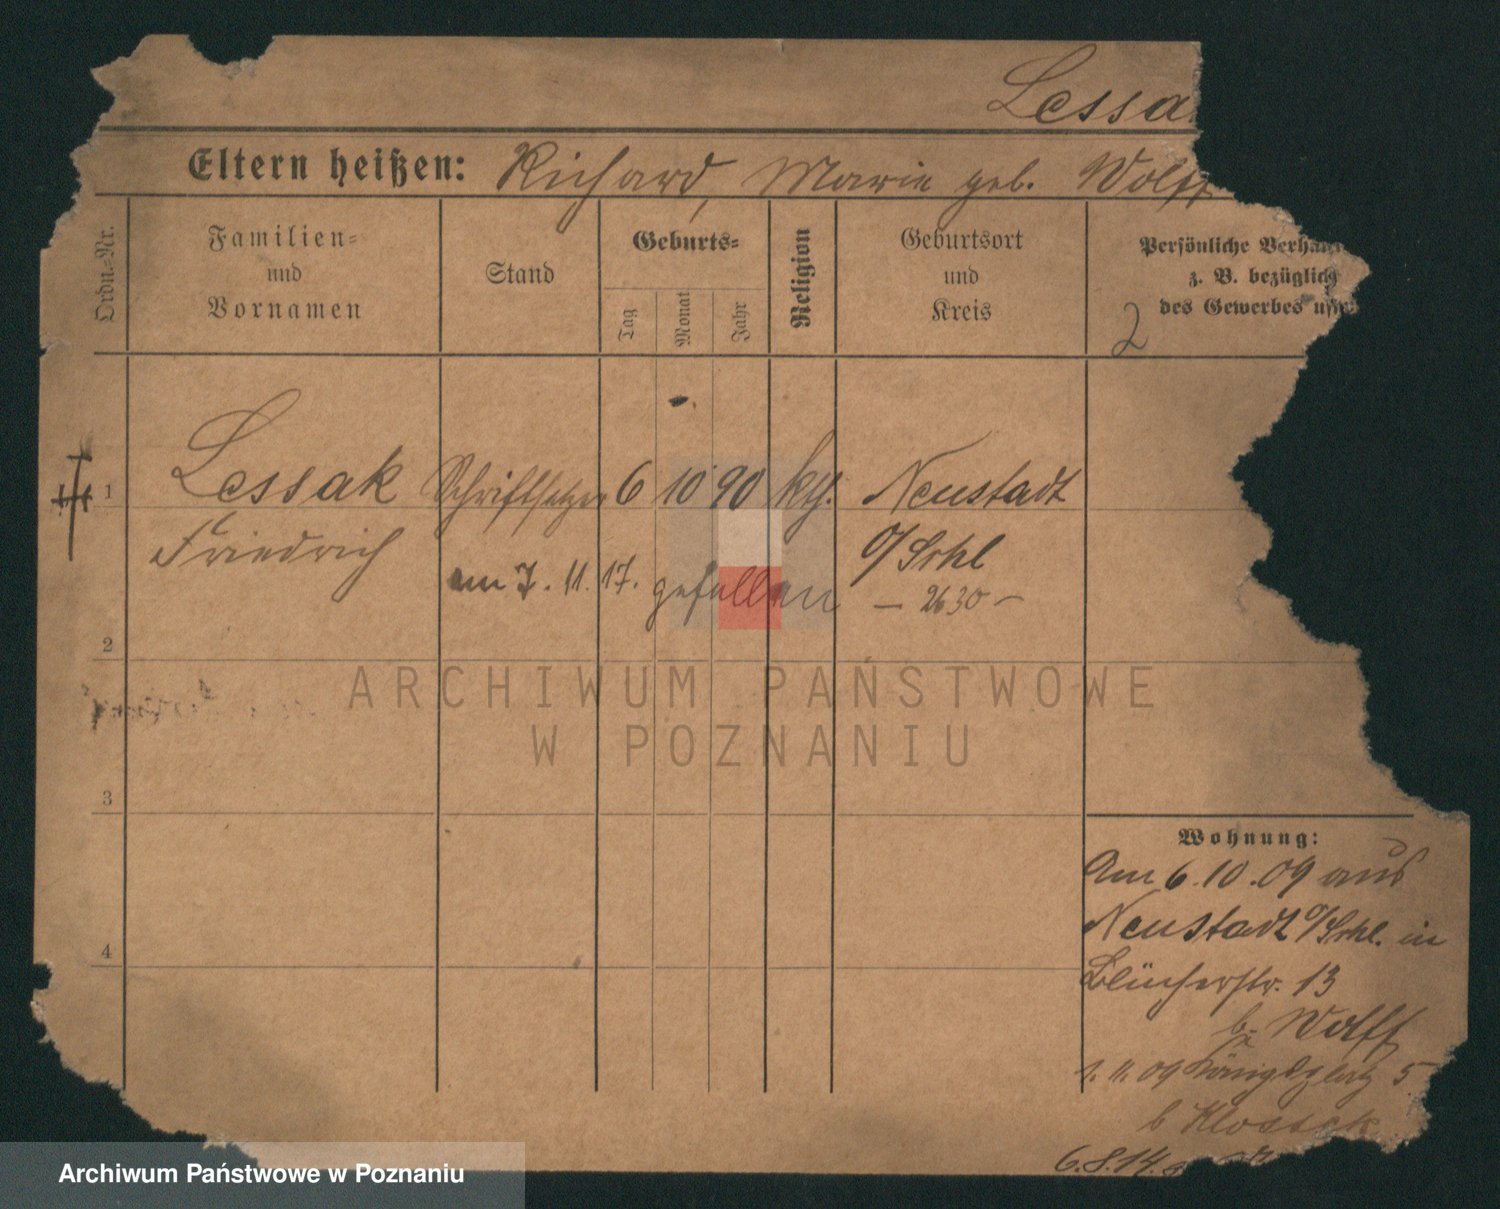 Lessa
Eltern heißen: Richard, Marie geb. Wolff
Ordn.-Nr.
Familien-
und
Vornamen
Stand
Geburts-
Tag
Monat
Jahr
Religion
Geburtsort
und
Kreis
Persönliche Verhä
z. B. bezüglich
des Gewerbes usw
2
1 Lessak Schriftsetzer 6 10 90 kth. Neustadt
Friedrich
O/Schl
am 7. 11. 17. gefallen
— 2630 —
2
3
4
Wohnung:
Am 6.10.09 aus
Neustadt O/Schl. in
Blücherstr. 13
b. Wolff
1. 11. 09 Königsplatz 5
b Klossek
6.8.14.
ARCHIWUM PAŃSTWOWE
W POZNANIU
Archiwum Państwowe w Poznaniu